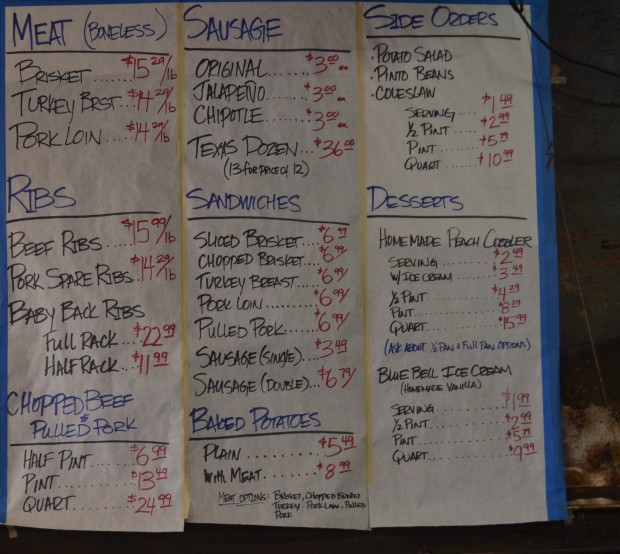 MEAT (BONELESS)
BRISKET......$15 29/lb
TURKEY BRST..$14 29/lb
PORK LOIN...$14 29/lb
RIBS
BEEF RIBS.....$15 99/lb
PORK SPARE RIBS.$14 29/lb
BABY BACK RIBS
FULL RACK...$22 99
HALF RACK...$11 99
CHOPPED BEEF
&
PULLED PORK
HALF PINT....$6 99
PINT........$13 49
QUART......$24 99
SAUSAGE
ORIGINAL.......$3 00 ea
JALAPEÑO......$3 00 ea
CHIPOTLE......$3 00 ea
TEXAS DOZEN..$36 00
(13 FOR PRICE OF 12)
SANDWICHES
SLICED BRISKET....$6 99
CHOPPED BRISKET...$6 99
TURKEY BREAST....$6 99
PORK LOIN.......$6 99
PULLED PORK.....$6 99
SAUSAGE (SINGLE)...$3 49
SAUSAGE (DOUBLE)...$6 79
BAKED POTATOES
PLAIN.........$5 49
WITH MEAT.....$8 99
MEAT OPTIONS: BRISKET, CHOPPED BRISKET
TURKEY, PORK LOIN, PULLED
PORK
SIDE ORDERS
·POTATO SALAD
·PINTO BEANS
·COLESLAW
SERVING....$1 49
½ PINT....$2 99
PINT.....$5 99
QUART....$10 99
DESSERTS
HOMEMADE PEACH COBBLER
SERVING.......$2 49
W/ ICE CREAM....$3 49
½ PINT.......$4 29
PINT........$8 29
QUART.......$15 99
(ASK ABOUT ½ PAN & FULL PAN OPTIONS)
BLUE BELL ICE CREAM
(HOMEMADE VANILLA)
SERVING........$1 99
½ PINT........$2 99
PINT.........$5 29
QUART........$9 99